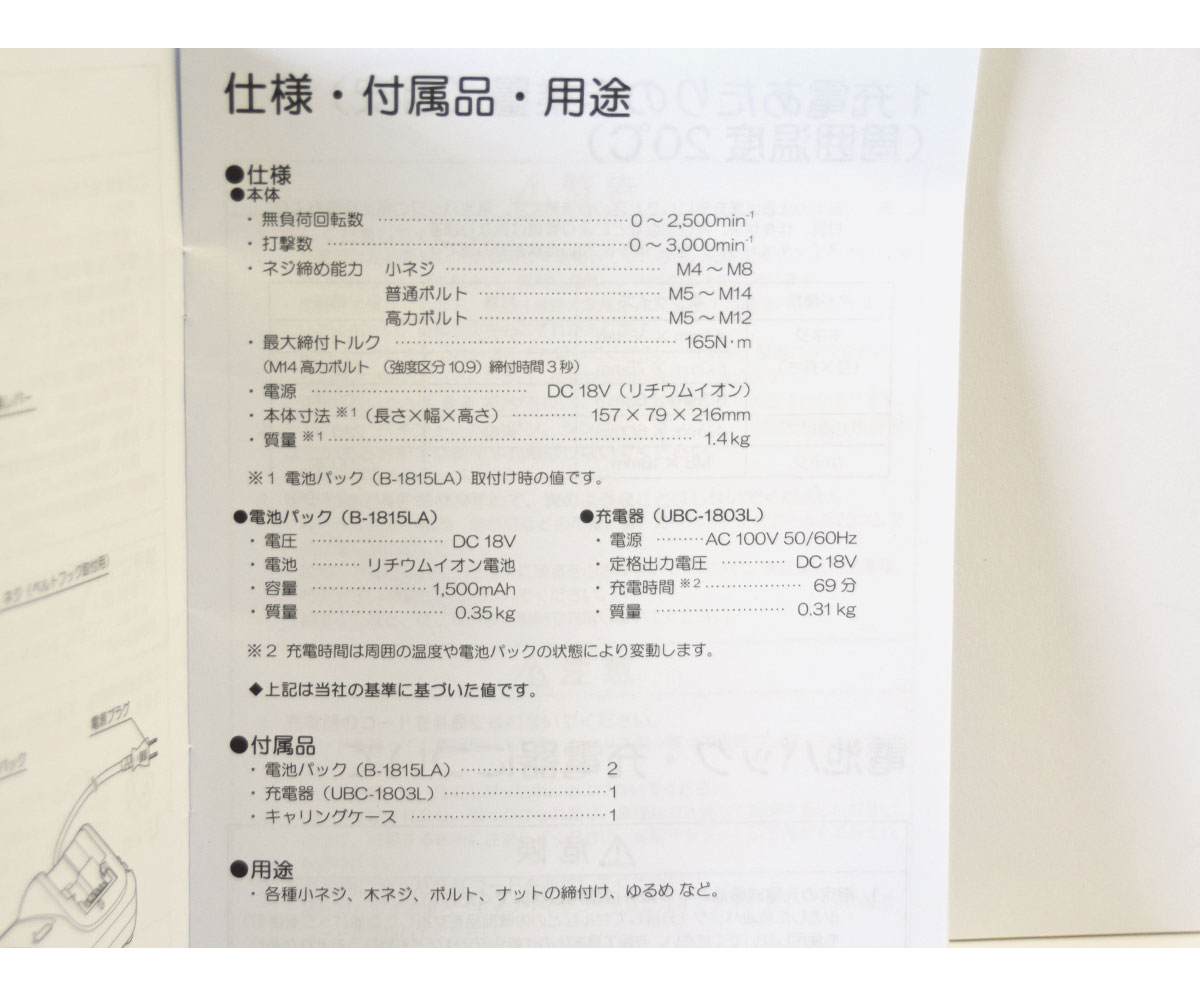 仕様・付属品・用途
●仕様
●本体
・無負荷回転数 ……………………………… 0～2,500min⁻¹
・打撃数 ……………………………………… 0～3,000min⁻¹
・ネジ締め能力 小ネジ ……………………… M4～M8
普通ボルト …………………… M5～M14
高力ボルト …………………… M5～M12
・最大締付トルク ……………………………… 165N·m
（M14高力ボルト （強度区分10.9）締付時間3秒）
・電源 …………………………… DC 18V（リチウムイオン）
・本体寸法※1（長さ×幅×高さ） ………… 157×79×216mm
・質量※1 ………………………………………… 1.4kg
※1 電池パック（B-1815LA）取付け時の値です。
●電池パック（B-1815LA）
・電圧 …………………… DC 18V
・電池 ……… リチウムイオン電池
・容量 ………………… 1,500mAh
・質量 …………………… 0.35kg
●充電器（UBC-1803L）
・電源 ……… AC 100V 50/60Hz
・定格出力電圧 ………… DC18V
・充電時間※2 ……………… 69分
・質量 …………………… 0.31kg
※2 充電時間は周囲の温度や電池パックの状態により変動します。
◆上記は当社の基準に基づいた値です。
●付属品
・電池パック（B-1815LA） ………………… 2
・充電器（UBC-1803L） ……………………… 1
・キャリングケース …………………………… 1
●用途
・各種小ネジ、木ネジ、ボルト、ナットの締付け、ゆるめ など。
ネジ（ベルトフック取付用）
電源プラグ
パック